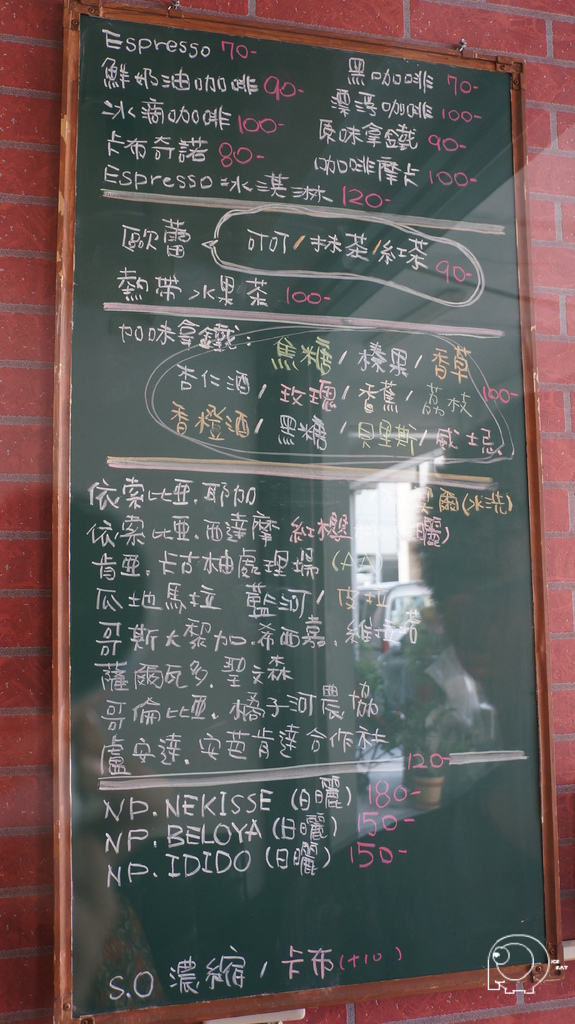 Espresso 70-
黑咖啡 70-
鮮奶油咖啡 90-
漂浮咖啡 100-
冰滴咖啡 100-
原味拿鐵 90-
卡布奇諾 80-
咖啡摩卡 100-
Espresso冰淇淋 120-
歐蕾 可可/抹茶/紅茶 90-
熱帶水果茶 100-
加味拿鐵:
焦糖/榛果/香草
杏仁酒/玫瑰/香蕉/荔枝 100-
香橙酒/黑糖/貝里斯/威士忌
依索比亞.耶加 (水洗)
依索比亞.西達摩 紅櫻
肯亞.卡古柚處理場 (AA)
瓜地馬拉 藍河/
哥斯大黎加.希西嘉.
薩爾瓦多.聖文森
哥倫比亞.橘子河農協
盧安達.安芭肯達合作社
120-
NP.NEKISSE (日曬) 180-
NP.BELOYA (日曬) 150-
NP.IDIDO (日曬) 150-
S.O 濃縮/卡布(+10)